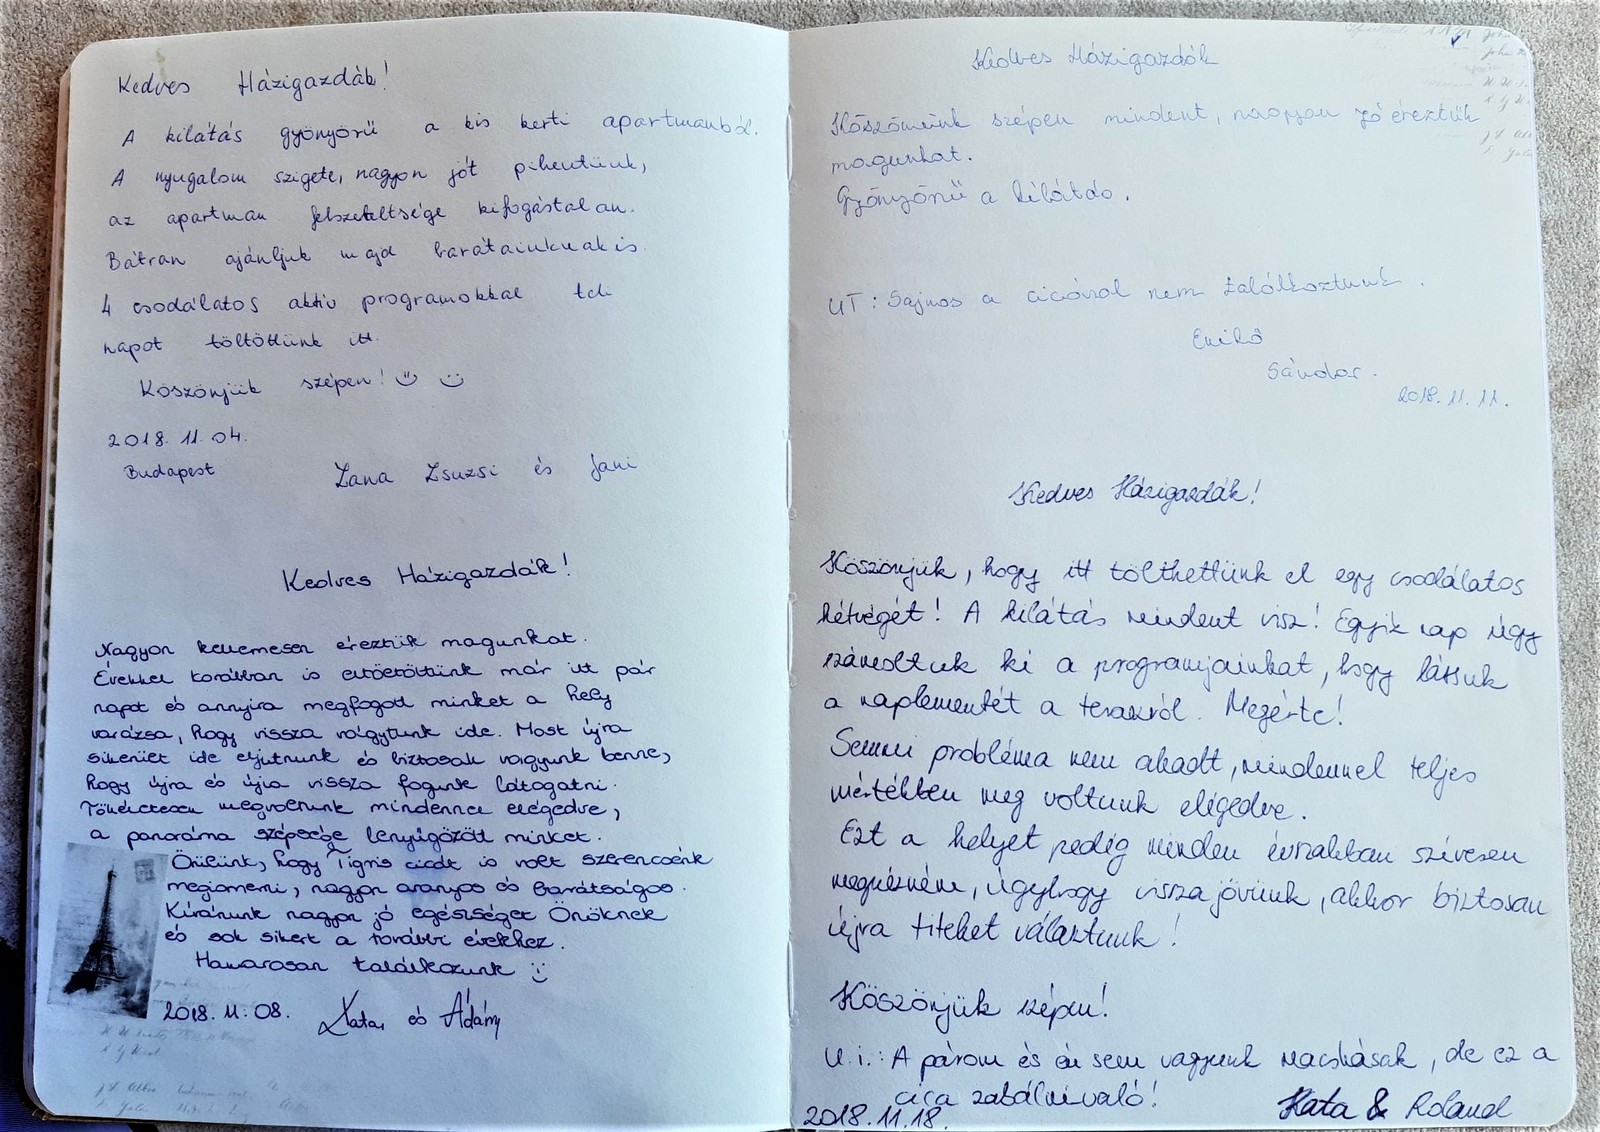 Kedves Házigazdák!
A kilátás gyönyörű a kis kerti apartmanból.
A nyugalom szigete, nagyon jót pihentünk,
az apartman felszereltsége kifogástalan.
Bátran ajánljuk majd barátainknak is.
4 csodálatos aktív programokkal teli
napot töltöttünk itt.
Köszönjük szépen!
2018. 11. 04.
Budapest
Zsuzsi és Jani
Kedves Házigazdák!
Nagyon kellemesen éreztük magunkat.
Évekkel korábban is eltöltöttünk már itt pár
napot és annyira megfogott minket a hely
varázsa, hogy vissza vágytunk ide. Most újra
sikerült ide eljutnunk és biztosak vagyunk benne,
hogy újra és újra vissza fogunk látogatni.
Tökéletesen megvoltunk mindennel elégedve,
a panoráma szépsége lenyűgözött minket.
Örülünk, hogy Tigris cicát is volt szerencsénk
megismerni, nagyon aranyos és barátságos.
Kívánunk nagyon jó egészséget Önöknek
és sok sikert a további évekhez.
Hamarosan találkozunk :)
2018. 11. 08. Kata és Ádám
Kedves Házigazdák
Köszönünk szépen mindent, nagyon jó éreztük
magunkat.
Gyönyörű a kilátás.
UT: Sajnos a cicával nem találkoztunk.
Enikő
Sándor.
2018. 11. 11.
Kedves Házigazdák!
Köszönjük, hogy itt tölthettünk el egy csodálatos
hétvégét! A kilátás mindent visz! Egyik nap úgy
számoltuk ki a programjainkat, hogy lássuk
a naplementét a teraszról. Megérte!
Semmi probléma nem akadt, mindennel teljes
mértékben meg voltunk elégedve.
Ezt a helyet pedig minden évszakban szívesen
megnéznénk, úgyhogy visszajövünk, akkor biztosan
újra titeket választunk!
Köszönjük szépen!
U.i.: A párom és én sem vagyunk macskásak, de ez a
cica zabálnivaló!
2018.11.18. Kata & Roland